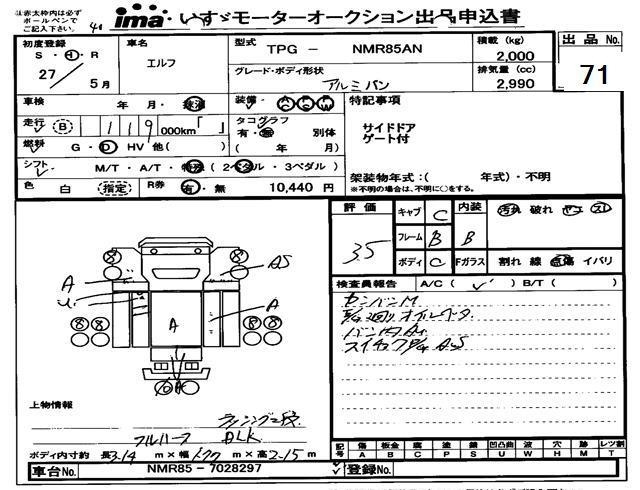 ※赤太枠内は必ず
ボールペンで
ご記入下さい。
ima いすゞモーターオークション出品申込書
初度登録
S・H・R
27/5月
車名
エルフ
型式 TPG - NMR85AN
グレード・ボディ形状
アルミバン
積載 (kg)
2,000
排気量 (cc)
2,990
出品 No.
71
車検 年 月・抹消
装備
走行 (B) 119,000km「 」
タコグラフ
有・無 別体
( 年 月)
燃料 G・D HV 他( )
シフト M/T・A/T・特殊 (2ペダル・3ペダル)
色 白 (指定) R券 有・無 10,440 円
特記事項
サイドドア
ゲート付
架装物年式:( 年式)・不明
※不明の場合は、不明に○をする。
評価 3.5
キャブ C
フレーム B
ボディ C
内装 B
Fガラス
汚れ 破れ ヤニ スレ
割れ 線 点傷 イバリ
検査員報告 A/C( ✓ ) B/T( )
A
A
A
AS
A
8 8
8 8
上物情報
フルハーフ
ボディ内寸約 長3.14 m×幅1.77 m×高2.15 m
車台No. NMR85 - 7028297
登録No.
記号 傷 板金 腐 塗 錆 凹凸曲 波 穴 跡 レツ割
A B C P S U W H M T